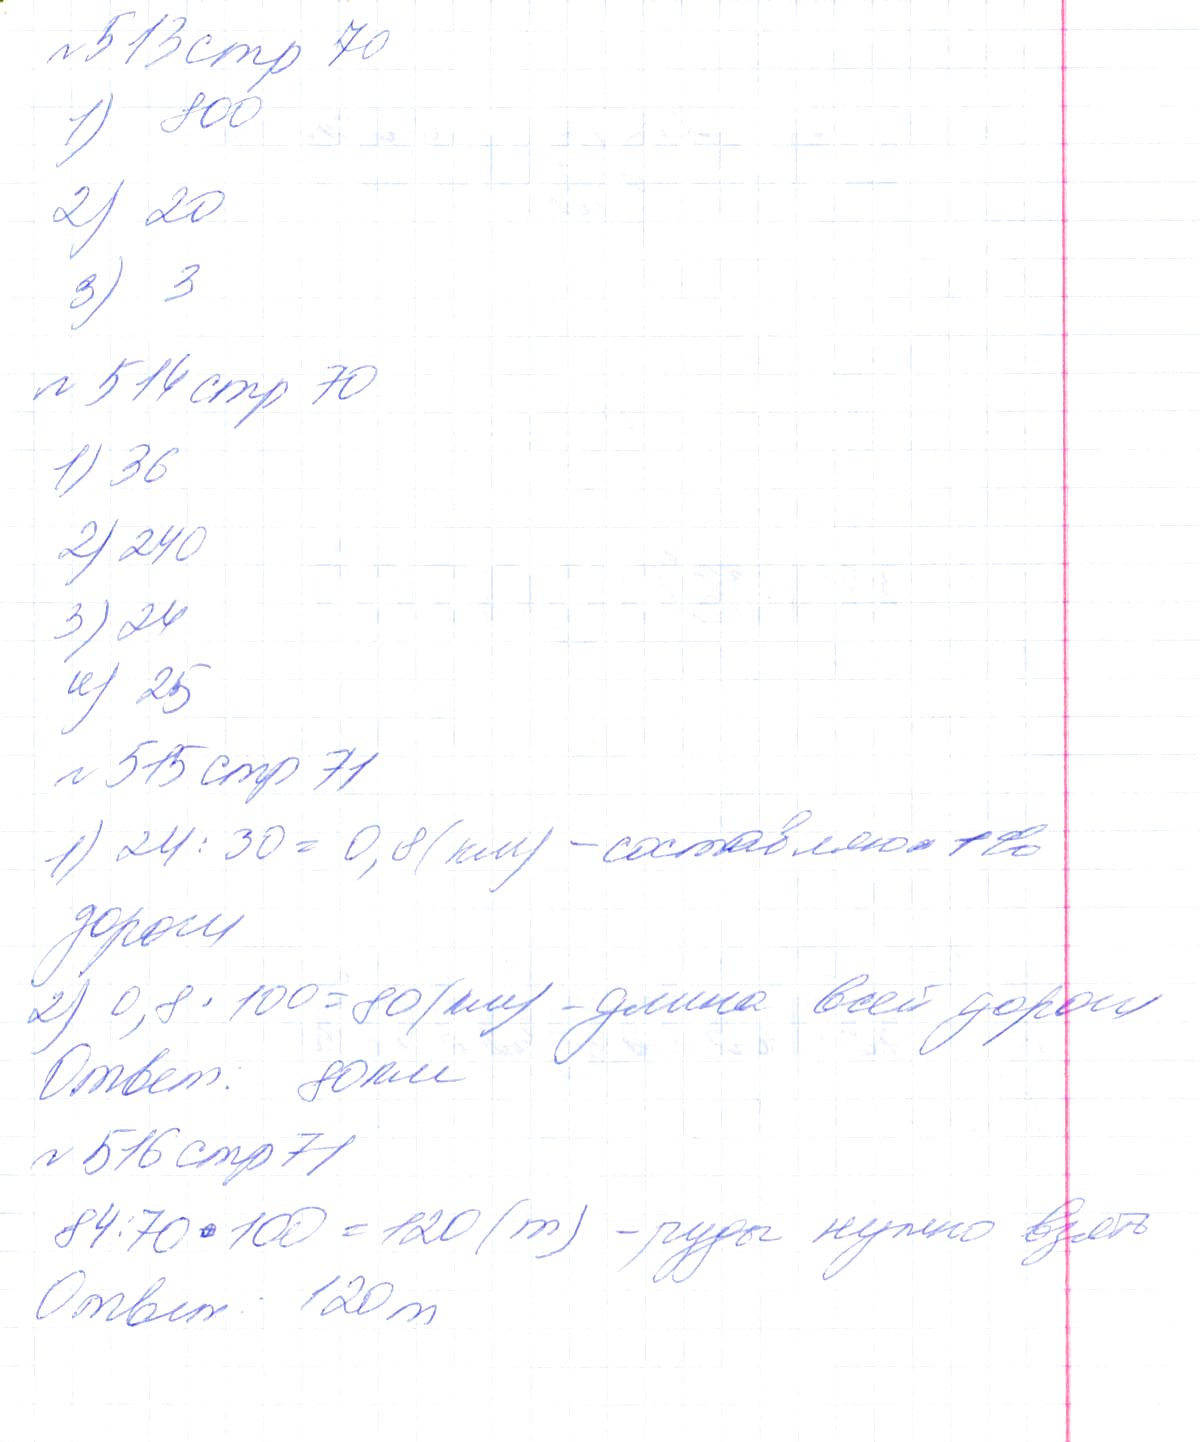 №513 стр 70
1) 800
2) 20
3) 3
№ 514 стр 70
1) 36
2) 240
3) 24
4) 25
№ 515 стр 71
1) 24 : 30 = 0,8 (км) - составляют 1%
дороги
2) 0,8 · 100 = 80 (км) - длина всей дороги
Ответ: 80 км
№ 516 стр 71
84 : 70 • 100 = 120 (т) - руды нужно взять
Ответ: 120 т